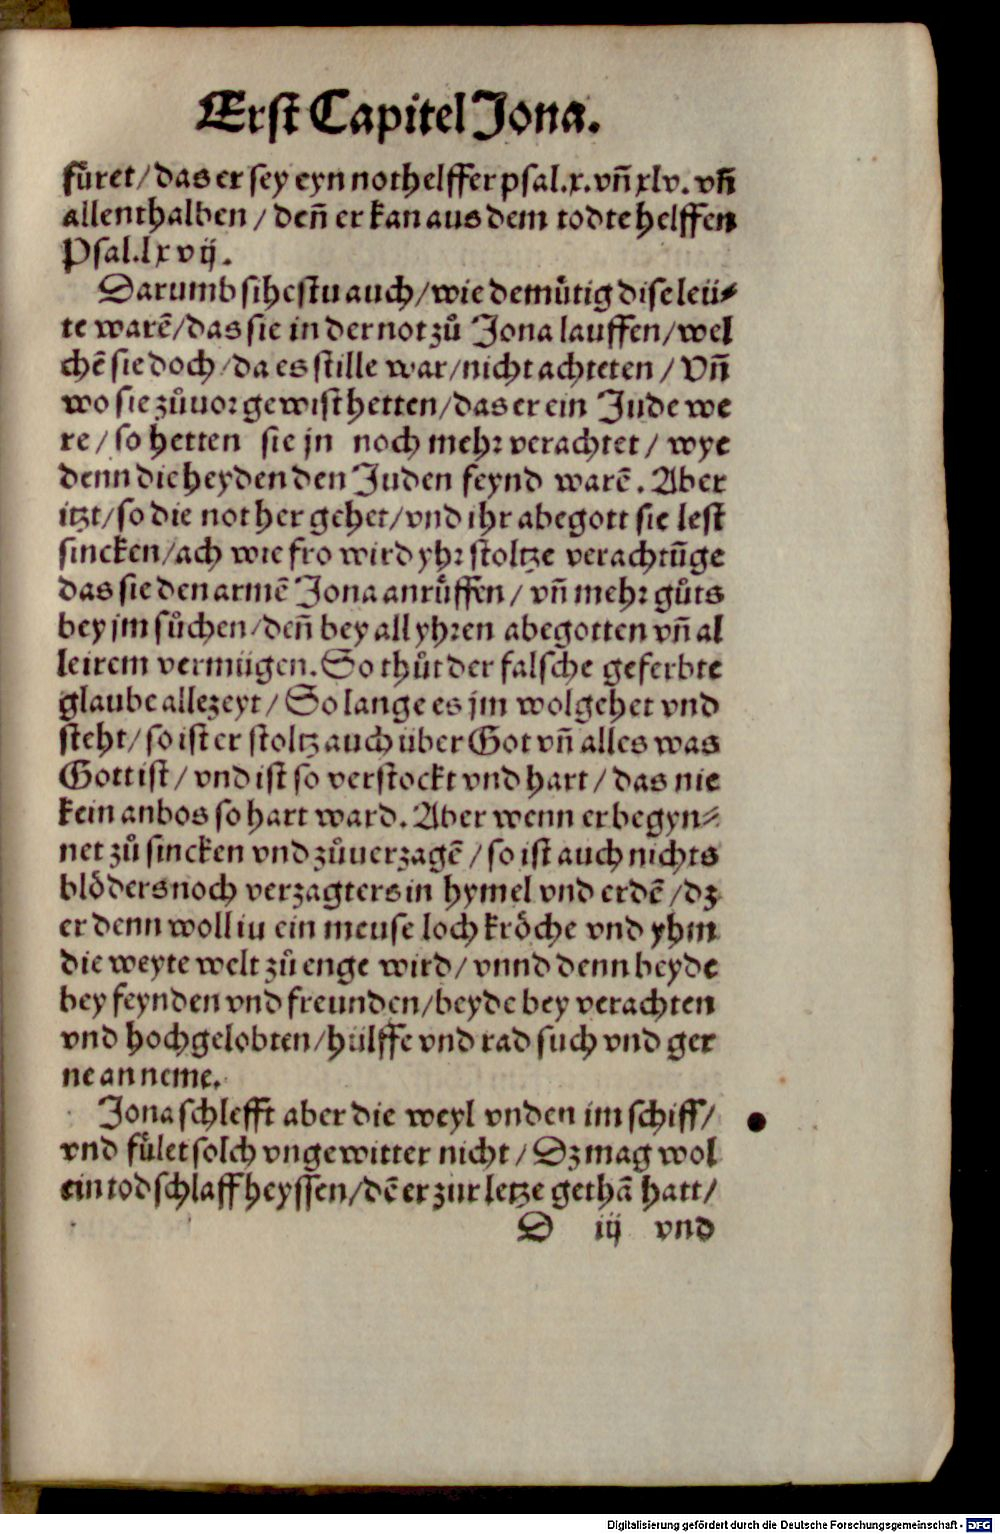 Erst Capitel Jona.
fůret/ das er sey eyn nothelffer psal.x.vñ xlv. vñ
allenthalben / deñ er kan aus dem todte helffen
Psal.lxvij.
Darumb sihestu auch/wie demůtig dise leü⸗
te warē/das sie in der not zů Jona lauffen/wel
chē sie doch/da es stille war/nicht achteten / Vñ
wo sie zůuor gewist hetten/das er ein Jude we
re/ so hetten sie jn noch mehr verachtet/ wye
denn die heyden den Juden feynd warē. Aber
itzt/so die not her gehet/vnd ihr abegott sie lest
sincken/ach wie fro wird yhr stoltze verachtūge
das sie den armē Jona anrůffen/ vñ mehr gůts
bey jm sůchen/deñ bey all yhren abegotten vñ al
leirem vermügen. So thůt der falsche geferbte
glaube allezeyt/ So lange es jm wolgehet vnd
steht/ so ist er stoltz auch über Got vñ alles was
Gott ist/ vnd ist so verstockt vnd hart/ das nie
kein anbos so hart ward. Aber wenn er begyn⸗
net zů sincken vnd zůuerzagē / so ist auch nichts
blöders noch verzagters in hymel vnd erdē /dz
er denn woll iu ein meuse loch kröche vnd yhm
die weyte welt zů enge wird/ vnnd denn beyde
bey feynden vnd freunden/beyde bey verachten
vnd hochgelobten/hülffe vnd rad such vnd ger
ne an neme.
Jona schlefft aber die weyl vnden im schiff/
vnd fůlet solch vngewitter nicht/ Dz mag wol
ein tod schlaff heyssen/dē er zur letze gethā hatt/
D iij vnd
Digitalisierung gefördert durch die Deutsche Forschungsgemeinschaft - DFG